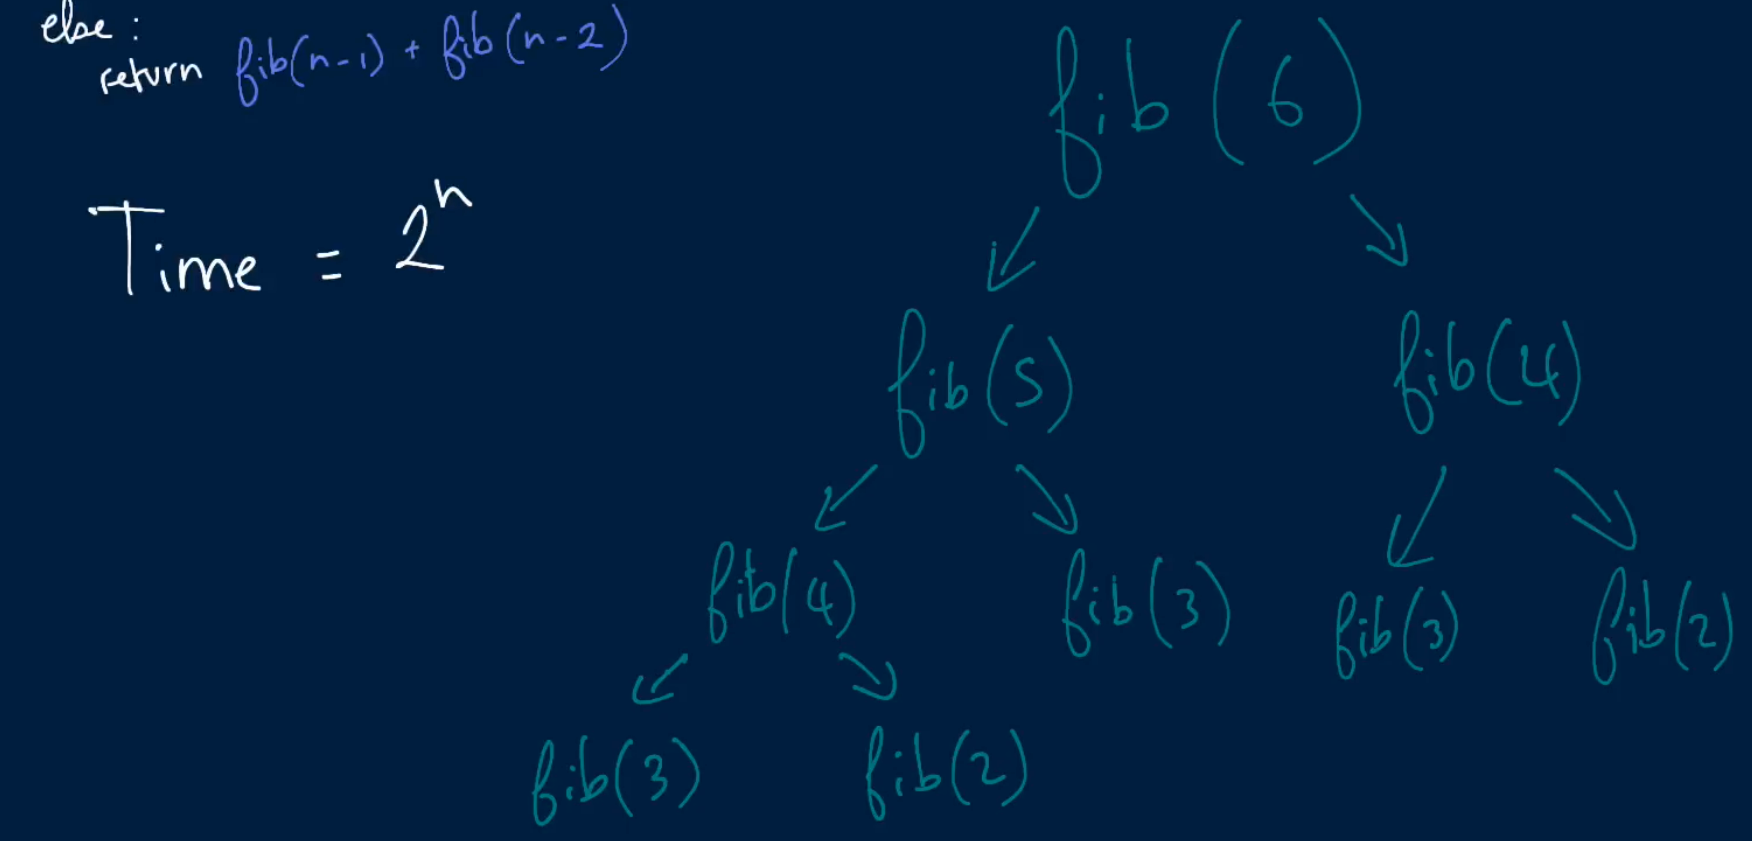 else:
return fib(n-1) + fib(n-2)
Time = 2^n
fib(6)
fib(5) fib(4)
fib(4) fib(3) fib(3) fib(2)
fib(3) fib(2)